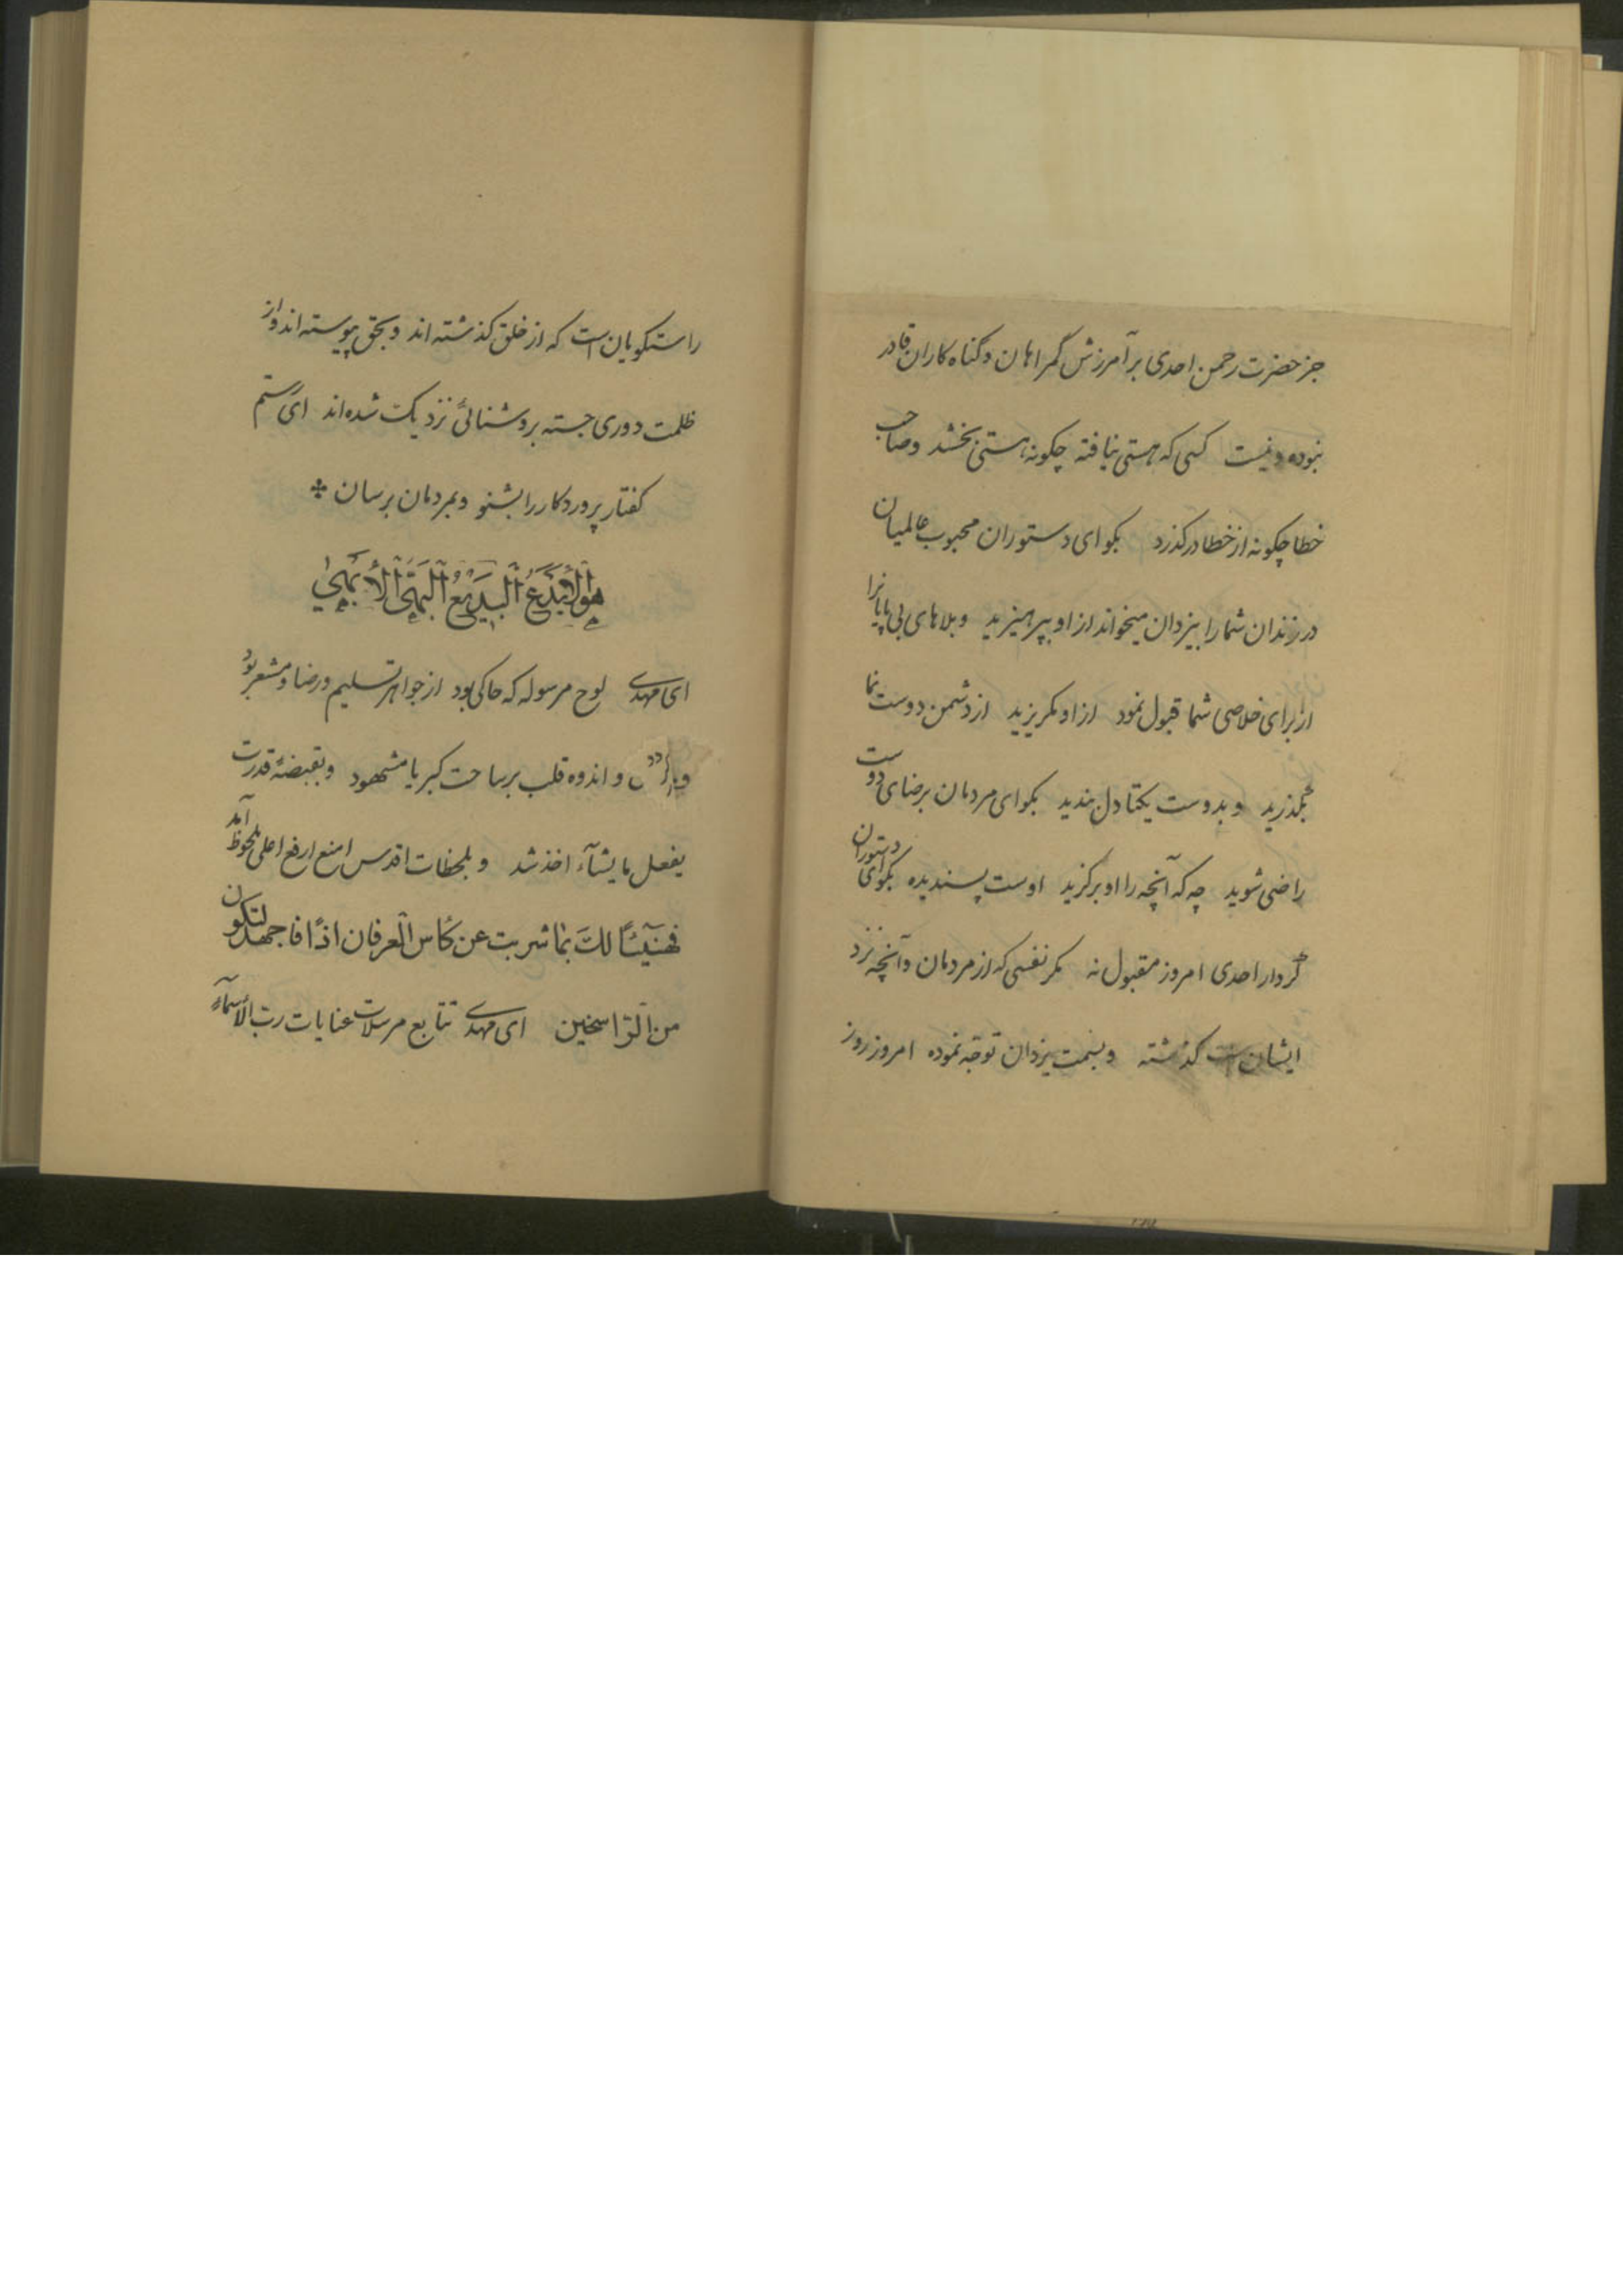 جز حضرت رحمن احدی بر آمرزش گمراهان و گناه کاران قادر
نبوده و نیست کسی که هستی نیافته چگونه هستی بخشد و صاحب
خطا چگونه از خطا درگذرد بگو ای دستوران محبوب عالمیان
در زندان شما را بیزدان میخواند از او بپرهیزید و بلاهای بی پایانرا
از برای خلاصی شما قبول نمود از او مگریزید از دشمن دوست نما
بگذرید و بدوست یکتا دل بندید بگو ای مردمان برضای دوست
راضی شوید چه که آنچه را او برگزید اوست پسندیده بگو ای دستوران
کردار احدی امروز مقبول نه مگر نفسی که از مردمان و آنچه نزد
ایشان است گذشته و بسمت یزدان توجّه نموده امروز روز
راستگویان است که از خلق گذشته اند و بحق پیوسته اند و از
ظلمت دوری جسته بروشنائی نزدیک شده اند ای رستم
گفتار پروردگار را بشنو و بمردمان برسان *
هو الأبدع البدیع البهیّ الأبهی
ای مهدی لوح مرسوله که حاکی بود از جواهر تسلیم و رضا و مشعر بود
و اندوه قلب بر ساحت کبریا مشهود و بقبضهٔ قدرت
یفعل ما یشآء اخذ شد و بلحظات اقدس امنع ارفع اعلی ملحوظ آمد
فهنیئًا لک بما شربت عن کأس العرفان اذًا فاجهد لتکون
من الرّاسخین ای مهدی تتابع مرسلات عنایات ربّ الأسمآء